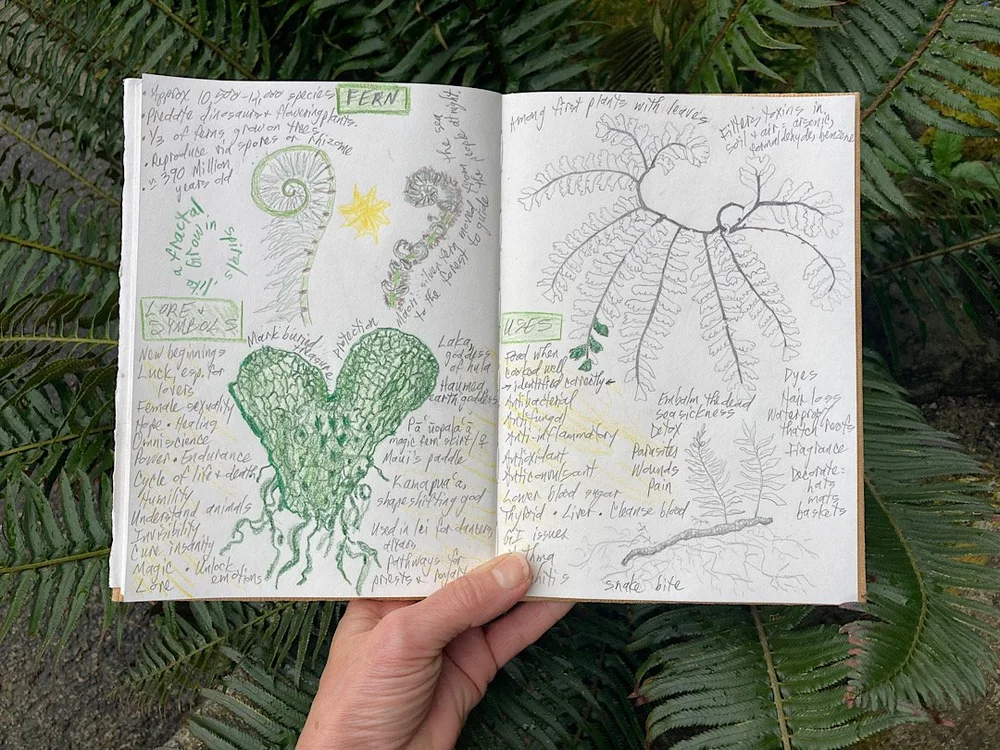 • Approx 10,500-14,000 species
FERN
• Predate dinosaurs + flowering plants.
• 1/3 of ferns grow on trees
• Reproduce via spores + rhizome
~ 390 million
years old
a fractal
Grow in
spirals
Maori - silver fern moved from the sea
to the forest to guide the people @ night
LORE +
SYMBOLS
New beginnings
Luck esp. for
lovers
Female sexuality
Hope • Healing
Omniscience
Power • Endurance
Cycle of life & death
Humility
Understand animals
Invisibility
Cure insanity
Magic • Unlock
emotions
Love
Mark buried
treasure
protection
Laka,
goddess
of hula
Haumea,
earth goddess
Pā'ūopala'ā
magic fern skirt
Maui's paddle
Kamapua'a,
shapeshifting god
Used in lei for dancers,
altars
Pathways for
priests +
Among first plants with leaves
Filters toxins in
soil + air: arsenic,
formaldehyde, benzene
USES
Food when
cooked well
→ identified correctly ←
Antibacterial
Antifungal
Anti-inflammatory
Antioxidant
Anticonvulsant
Lower blood sugar
Thyroid • Liver • Cleanse blood
GI issues
Embalm the dead
Sea sickness
Detox
Parasites
Wounds
Pain
Dyes
Hair loss
Waterproof
thatch roofs
Fragrance
Decorate:
hats
mats
baskets
snake bite